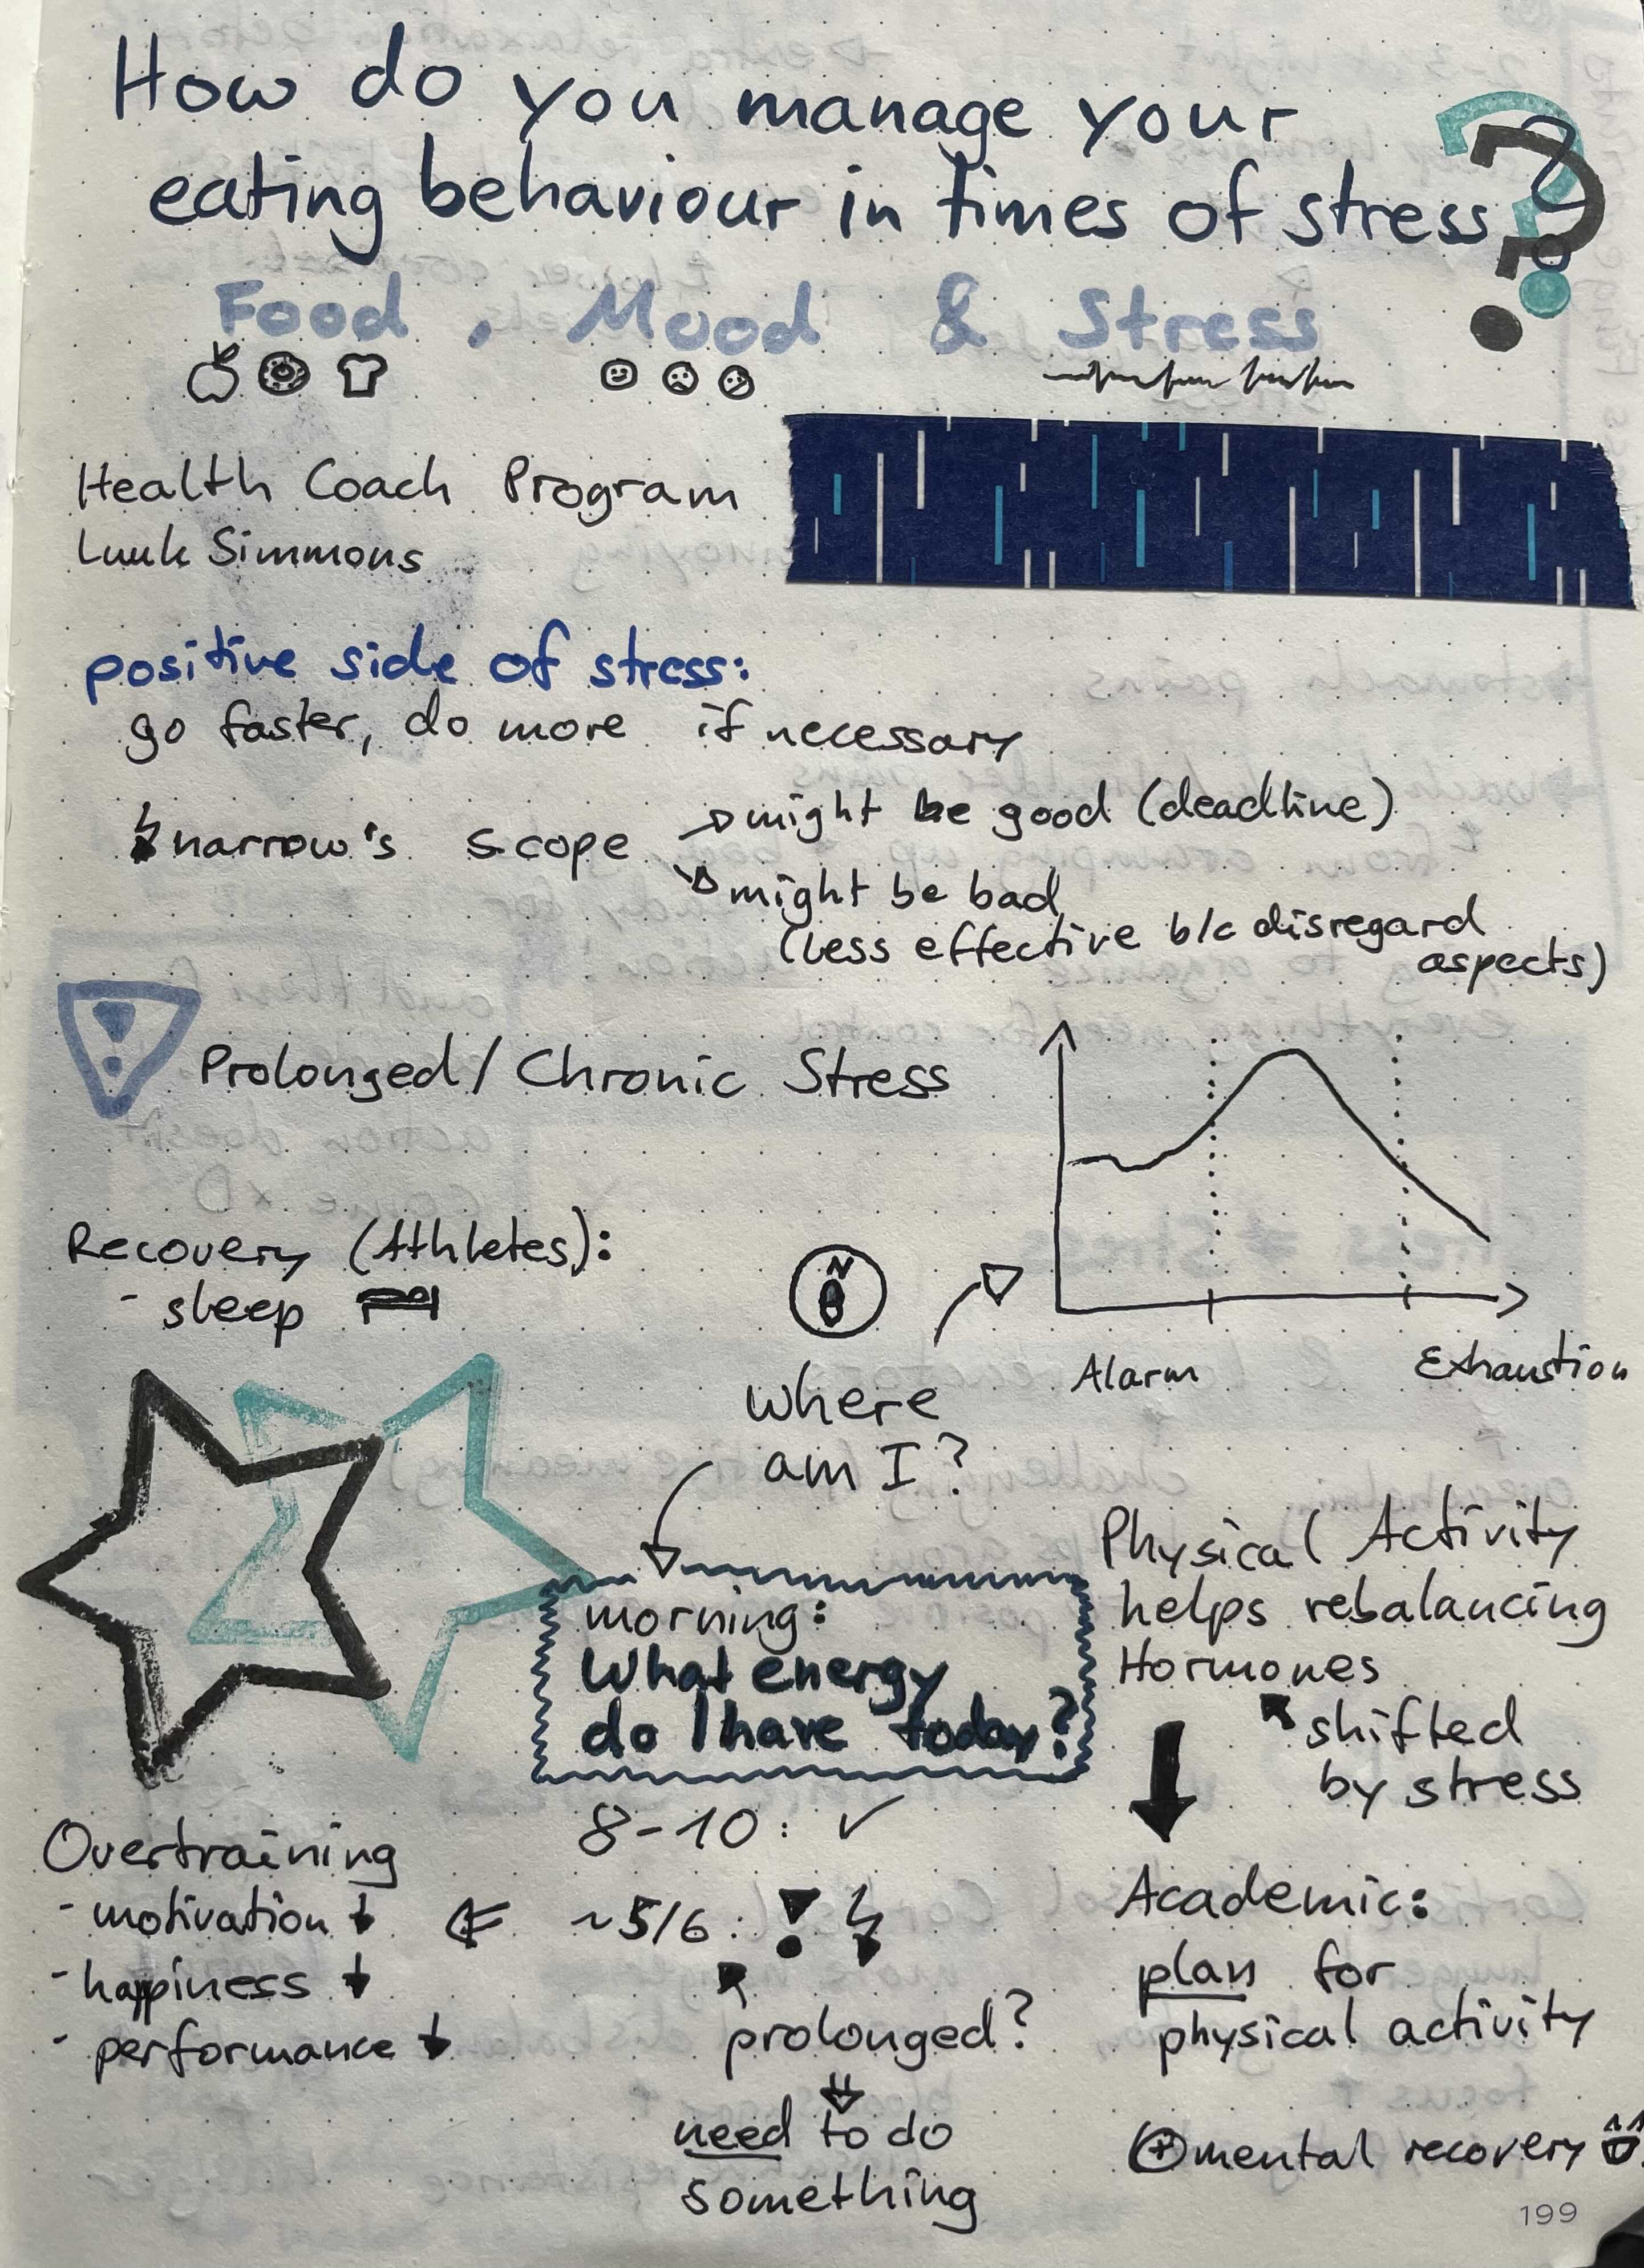 How do you manage your
eating behaviour in times of stress?
Food, Mood & Stress
Health Coach Program
Luuk Simmons
positive side of stress:
go faster, do more if necessary
narrow's scope
might be good (deadline)
might be bad
(less effective b/c disregard
aspects)
Prolonged / Chronic Stress
Alarm
Exhaustion
Recovery (Athletes):
- sleep
N
Where
am I?
morning:
What energy
do I have today?
8-10: ✓
~5/6:
prolonged?
need to do
something
Overtraining
- motivation ↓
- happiness ↓
- performance ↓
Physical Activity
helps rebalancing
Hormones
shifted
by stress
Academic:
plan for
physical activity
⊕ mental recovery
199